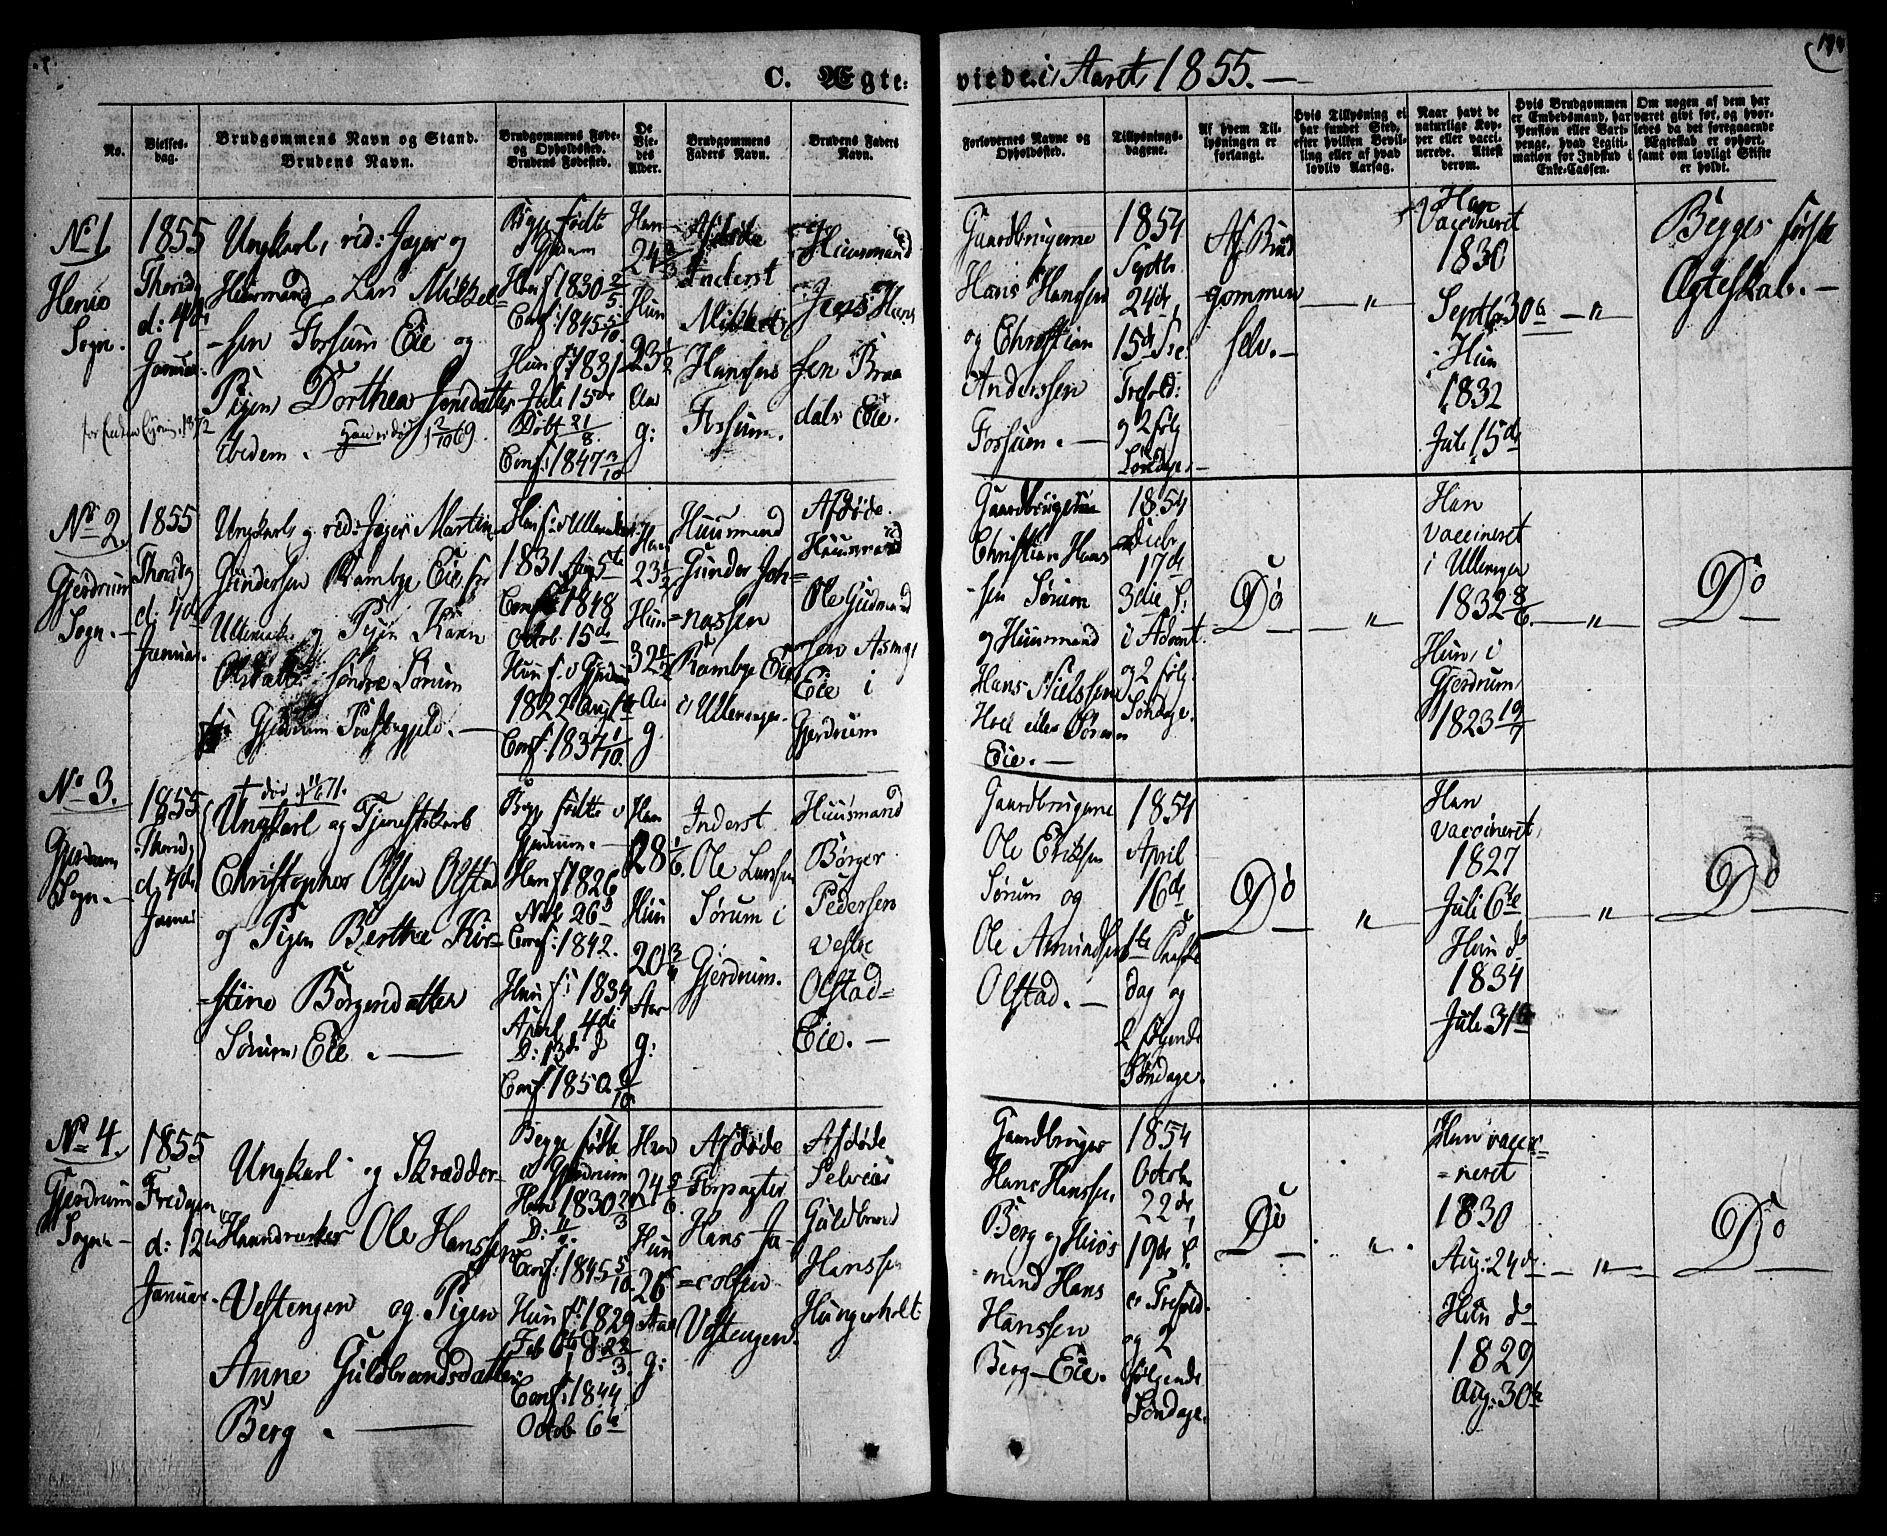 C. Ægte-
viede i Aaret 1855.
No.
Vielses-
dag.
Brudgommens Navn og Stand.
Brudens Navn.
Brudgommens Føde-
og Opholdssted.
Brudens Fødested.
De
Vie-
des
Alder.
Brudgommens
Faders Navn.
Brudens Faders
Navn.
Forlovernes Navne og
Opholdssted.
Tillysnings-
dagene.
Af hvem Til-
lysningen er
forlangt.
Hvis Tillysning ei
har fundet Sted,
efter hvilken Bevil-
ling eller af hvad
lovlig Aarsag.
Naar havt de
naturlige Kop-
per eller vacci-
nerede. Attest
derom.
Hvis Brudgommen
er Embedsmand, har
Pension eller Vart-
penge, hvad Legiti-
mation for Indskud i
Enke-Cassen.
Om nogen af dem har
været gift før, og hvor-
ledes da det foregaaende
Ægteskab er ophørt,
samt om lovligt Skifte
er holdt.
No 1
Sogn.
1855
Thorsd:
d: 4de
Januar.
Ungkarl, rid: Jæger og
Huusmand Lars Mikkel-
-sen Fossum Eie og
Pigen Dorthea Jensdatter
ibidem.
Begge fødte
i Gjerdrum
Han f 1830
Conf: 1845 5/10
Hun f 1831
Juli 15de
Døbt 21/8
Conf: 1847 3/10
Han
24 2/3
Hun
23 1/2
Aar
g:
Afdøde
Inderst
Mikkel
Hanssen
Fossum.
Huusmand
Jens Hans
sen Braa
dals Eie.
Gaardbrugerne
Hans Hanssen
og Christian
Anderssen
Fossum.
1854
Septbr
24de
15de S. e.
Trefold:
og 2 følg
Søndage.
Af Brud
gommen
selv.
"
Han
Vaccineret
1830
Septbr 30te
Hun
1832
Juli 15de
"
Begges første
Ægteskab.
No 2.
Gjerdrum
Sogn.
1855
Thorsdag
d: 4de
Januar.
Ungkarl og rid: Jæger Martin
Gundersen Rambye Eie
og Pigen Karen
Olsdatter Søndre Sørum
i Gjerdrum Præstegjeld.
Han f: i Ullensaker
1831 Aug 5te
Conf 1848
Octob. 15de
Hun f. i Gjerdrum
1822 Aug
Conf: 1837 1/10
Han
23 1/2
Hun
32 1/2
Aar
g.
Huusmand
Gunder Joh-
-nassen
Rambye Eie
i Ullensager.
Afdøde
Huusmand
Ole Gudmund
sen Asmy
Eie i
Gjerdrum
Gaardbrugerne
Christian Hans
-sen Sørum
og Huusmand
Hans Nielssen
Eie.
1854
Decbr
17de
3die S:
i Advent
og 2 følg.
Søndage.
Do
"
Han
vaccineret
i Ullensager
1832 8/6
Hun i
Gjerdrum
1823 19/7
"
Do
No 3.
Gjerdrum
Sogn.
1855
Thorsdag
d: 4de
Januar
† død
Ungkarl og Tjenestekarl
Christopher Olsen Olstad
og Pigen Berthe Kir-
-stine Børgersdatter
Sørum Eie.
Begge fødte i
Gjerdrum.
Han f 1826
Novb 26
Conf: 1842.
Hun f: 1834
April 4de
D: 13de
Conf: 1850 6/10
Han
28 1/6
Hun
20 3/4
Aar
g:
Inderst
Ole Larssen
Sørum i
Gjerdrum.
Huusmand
Børger
Pedersen
Vestre
Olstad-
Eie.
Gaardbrugerne
Ole Eriksen
Sørum og
Ole Amundsen
Olstad.
1854
April
16de
1ste Paaske
dag og
2 følgende
Søndage.
Do
"
Han
vaccineret
1827
Juli 6te
Hun do
1834
Juli 31te
"
Do
No 4.
Gjerdrum
Sogn
1855
Fredagen
d: 12te
Januar.
Ungkarl og Skrædder-
Haandværker Ole Hanssen
Vestengen og Pigen
Anne Guldbrandsdatter
Berg.
Begge fødte
i Gjerdrum
Han 1830
Conf: 1845 5/10
Hun f: 1829
Feb 6te
Conf: 1844
Octob 6te
Han
24 5/6
Hun
26
Aar
g:
Afdøde
Forpagter
Hans Ja-
-cobsen
Vestengen.
Afdøde
Selveier
Guldbrand
Hanssen
Hungerholt
Gaardbruger
Hans Hanssen
Berg og Huus
-mand Hans
Hanssen
Berg-Eie.
1854
Octbr
22de
19de S.
e: Trefold.
og 2
følgende
Søndage.
Do
"
Han vacci-
-neret
1830
Aug: 24de
Hun do
1829
Aug: 30te
"
Do